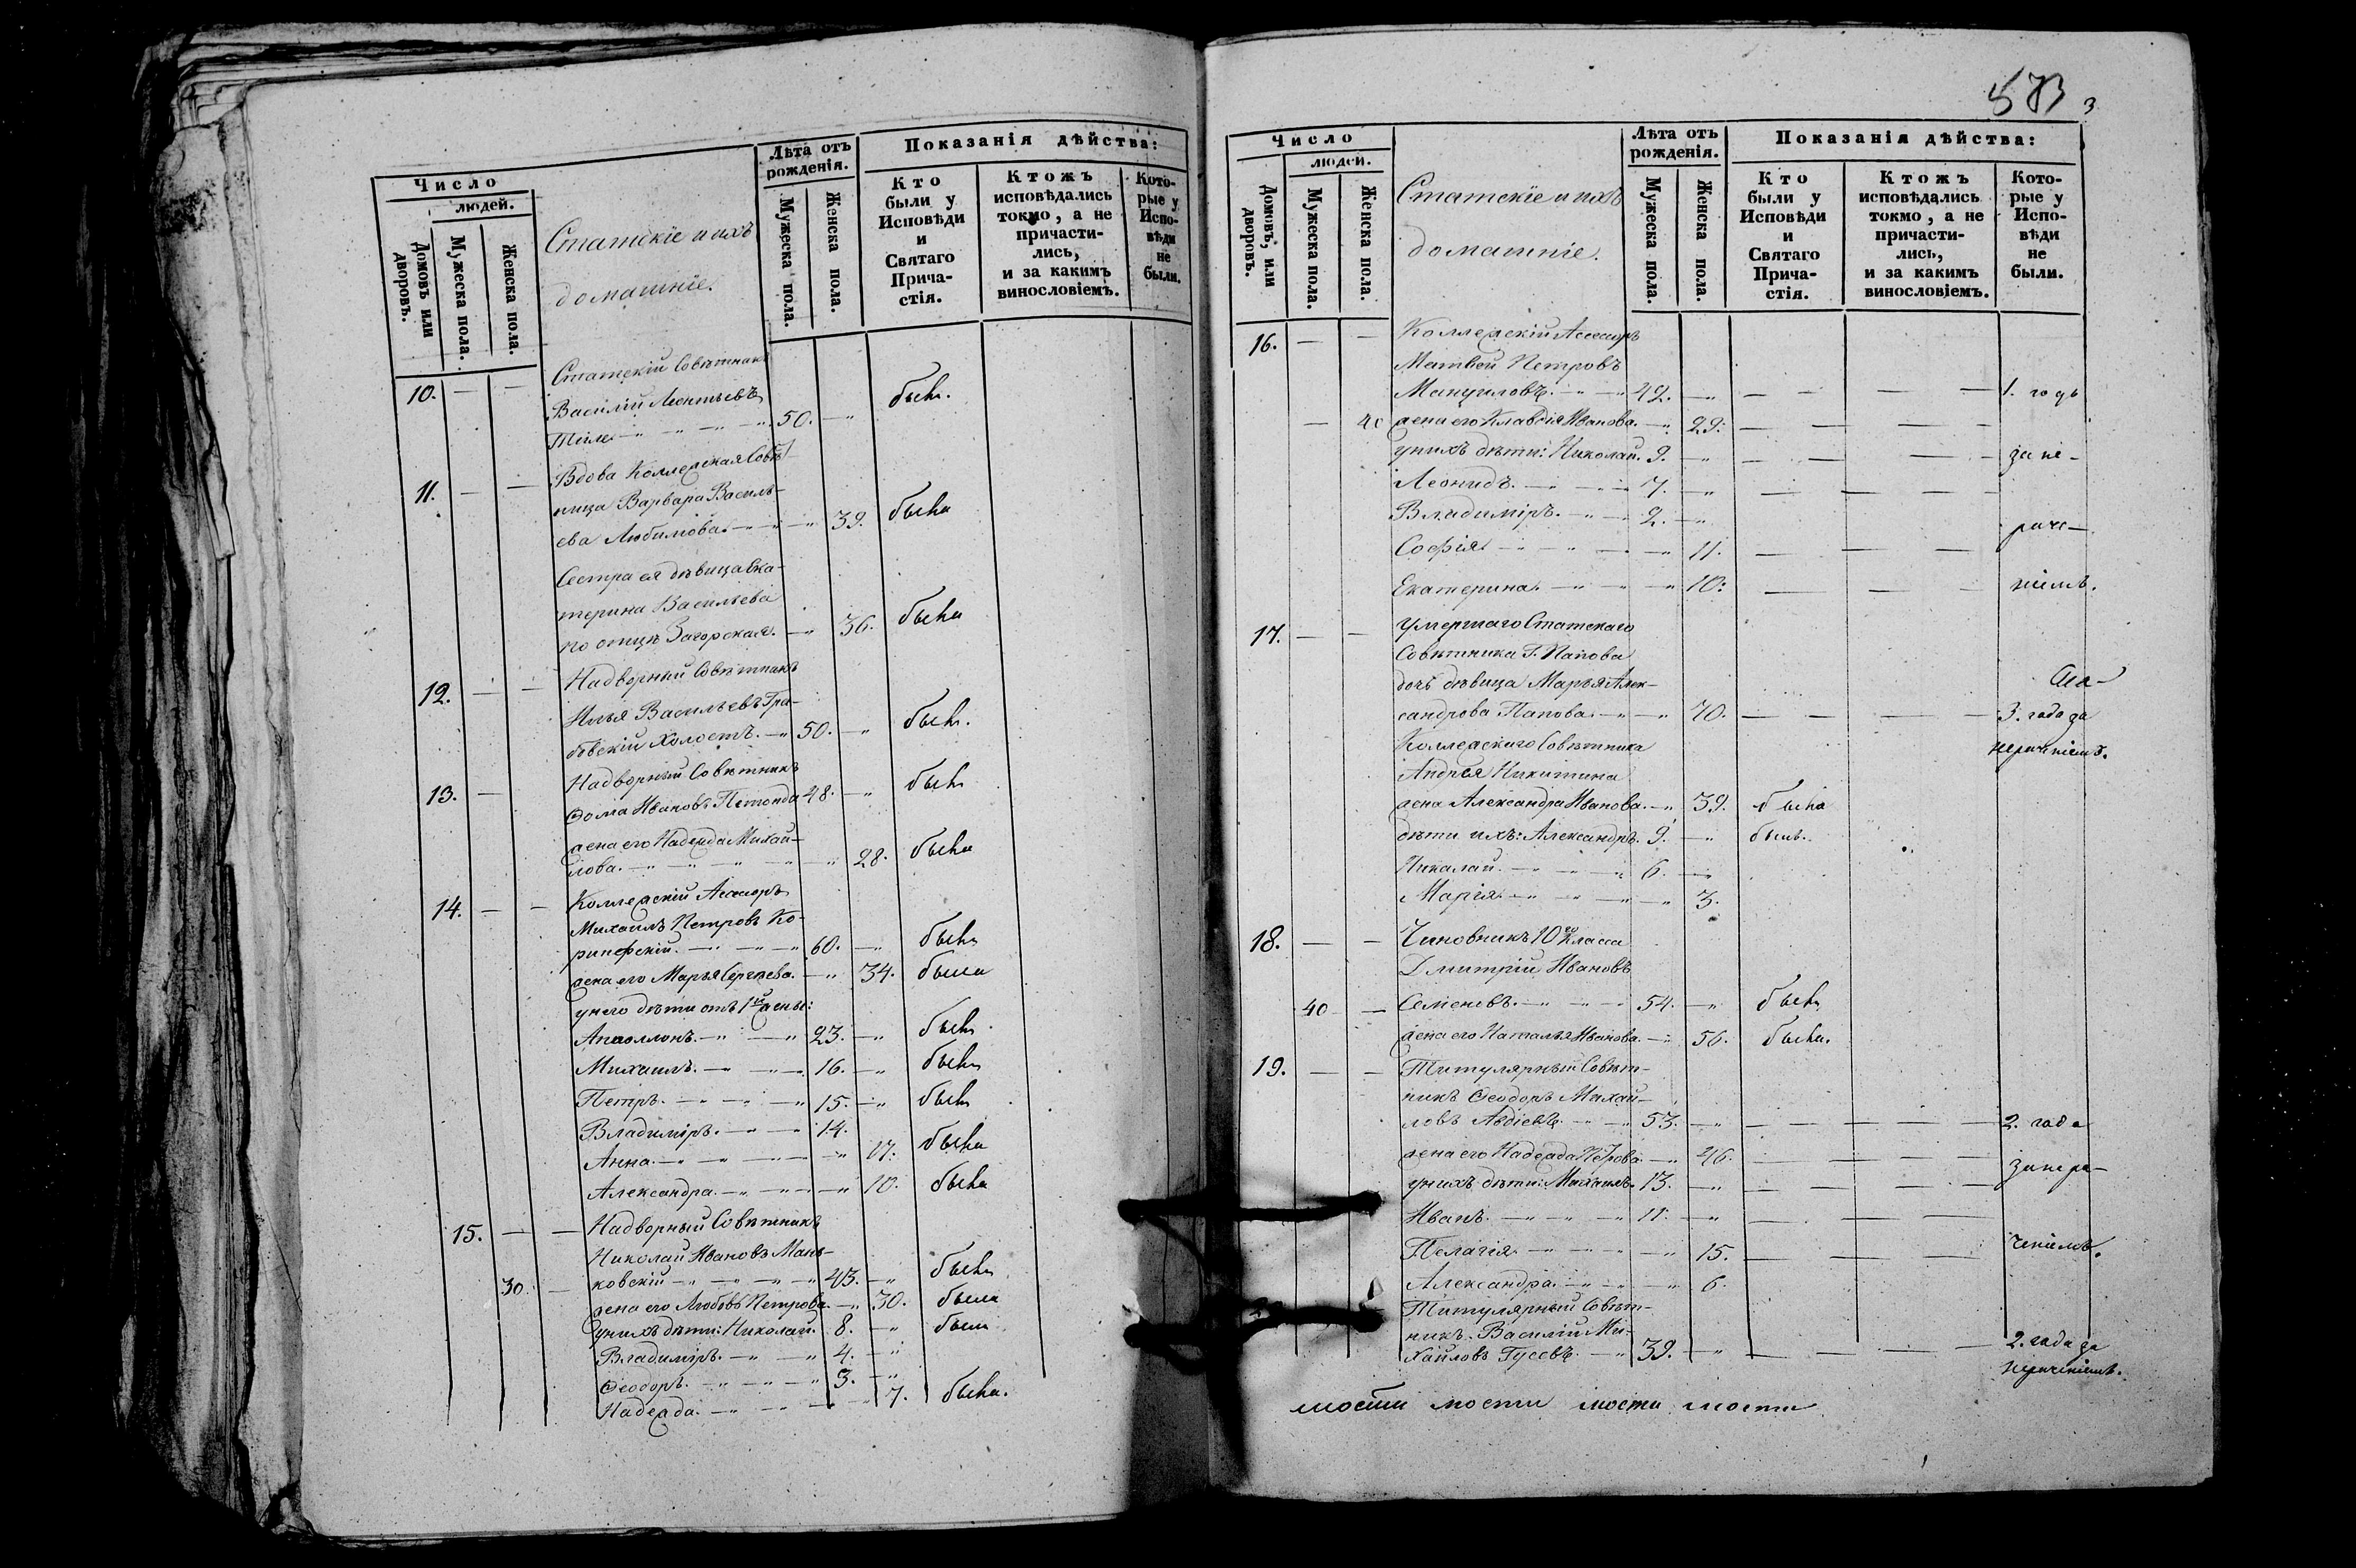 Число
людей.
Домовъ или дворовъ.
Мужеска пола.
Женска пола.
Статскіе и ихъ
домашніе.
Лѣта отъ рожденія.
Мужеска пола.
Женска пола.
Показанія дѣйства:
Кто были у Исповѣди и Святаго Прича-стія.
Ктожъ исповѣдались токмо, а не причасти-лись, и за какимъ винословіемъ.
Кото-рые у Испо-вѣди не были.
10. — — Статскій Совѣтникъ
Василій Леонтьевъ
Тиле 50. — былъ.
11. — — Вдова Коллежская Совѣт-
ница Варвара Василь-
ева Любимова. — 39. была
Сестра ея дѣвица Ека-
терина Васильева
по отцѣ Загорская. — 36. была
12. — — Надворный Совѣтникъ
Илья Васильевъ Гра-
бовскій холостъ. — 50. — былъ.
13. — Надворный Совѣтникъ
Ѳома Ивановъ Петонди 48. — былъ
жена его Надежда Михай-
лова. — 28. была
14. — — Коллежскій Ассесоръ
Михаилъ Петровъ Ко-
ринфскій. — 60. — былъ
жена его Марья Сергѣева. — 34. была
у него дѣти отъ 1й жены:
Апполлонъ. — 23. — былъ
Михаилъ. — 16. — былъ
Петръ. — 15. — былъ
Владиміръ. — 14.
Анна. — 17. была
Александра. — 10. была
15. — — Надворный Совѣтникъ
Николай Ивановъ Мань-
30. — ковскій — 43. — былъ
жена его Любовь Петрова. — 30. была
у нихъ дѣти: Николай. 8. — былъ
Владиміръ. — 4. —
Ѳеодоръ. — 3. —
Надежда. — 7. была.
573 3
Число
людей.
Домовъ, или дворовъ.
Мужеска пола.
Женска пола.
Статскіе и ихъ
домашніе.
Лѣта отъ рожденія.
Мужеска пола.
Женска пола.
Показанія дѣйства:
Кто были у Исповѣди и Святаго Прича-стія.
Ктожъ исповѣдались токмо, а не причасти-лись, и за какимъ винословіемъ.
Кото-рые у Испо-вѣди не были.
16. — — Коллежскій Ассесоръ
Матвей Петровъ
Мануиловъ. — 42. — — — — 1. годъ
— 40 жена его Клавдія Иванова. — 29. — — — —
у нихъ дѣти: Николай. 9. — — — — — за не-
Леонидъ. — 7. — — — — —
Владиміръ. — 2. — раче-
Софія. — 11. — — —
Екатерина. — 10. — — — ніемъ.
17. — — Умершаго Статскаго
Совѣтника Г. Папова
дочь дѣвица Марья Алек-
сандрова Папова. — 70. — — — — 3. года за
Коллежскаго Совѣтника нераченіемъ.
Андрея Никитина
жена Александра Иванова. — 39. была
дѣти ихъ: Александръ. 9. — былъ.
Николай. — 6. —
Марія. — 3.
18. — — Чиновникъ 10го Класса
Дмитрій Ивановъ
40 — Семеневъ. — 54. — былъ
жена его Наталья Иванова. — 56. была.
19. — — Титулярный Совѣт-
никъ Ѳеодоръ Михай-
ловъ Авдіевъ. — 53. — — — — — 2. года
жена его Надежда Петрова. — 46. — — — — за нера-
у нихъ дѣти: Михаилъ. 13. — — — — —
Иванъ. — 11. — — — —
Пелагія. — 15. — — — ченіемъ.
Александра. — 6.
Титулярный Совѣт-
никъ Василій Ми-
хайловъ Гусевъ. — 39. — — — — 2. года за
нераченіемъ.